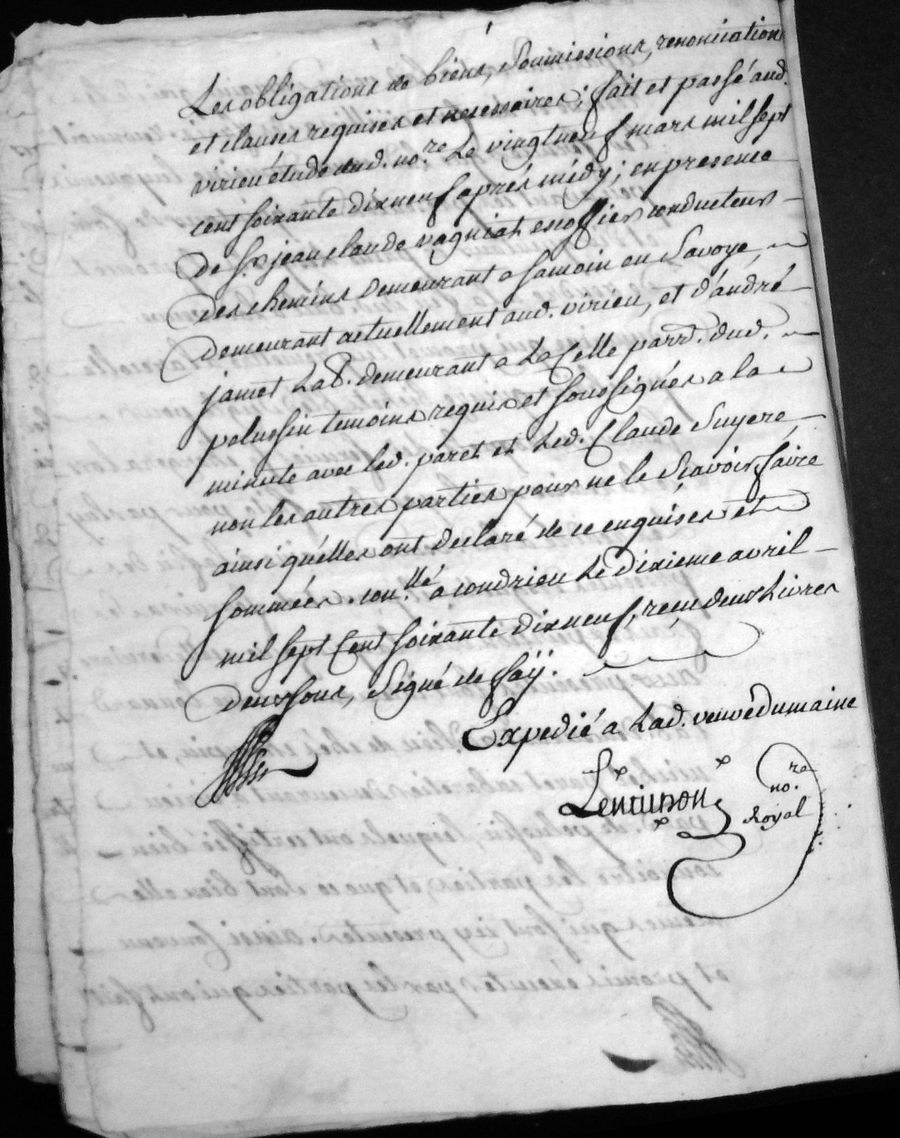 Les obligations de biens, soumissions, renonciations
et clauses requises et necessaires; fait et passé aud.
virieu étude dud. no.re Le vingtneuf mars mil sept
cent soixante dixneuf après midy; en presence
de Sr. jean claude vagniat officier conducteur
des chemins demeurant a samoin en Savoye
demeurant actuellement aud. virieu, et d'andré
jamet Lab. demeurant a La Celle parr. dud.
pelussin temoins requis et soussignés a la
minute avec led. paret et Led. Claude Suyere
non les autres parties pour ne le Scavoir faire
ainsi quélles ont declaré de ce enquises et
sommées. con.llé a condrieu Le dixieme avril
mil sept Cent soixante dixneuf, reçu deux Livres
deux sous, Signé de faÿ.
Expedié a Lad. veuve dumaine
no.re
Royal